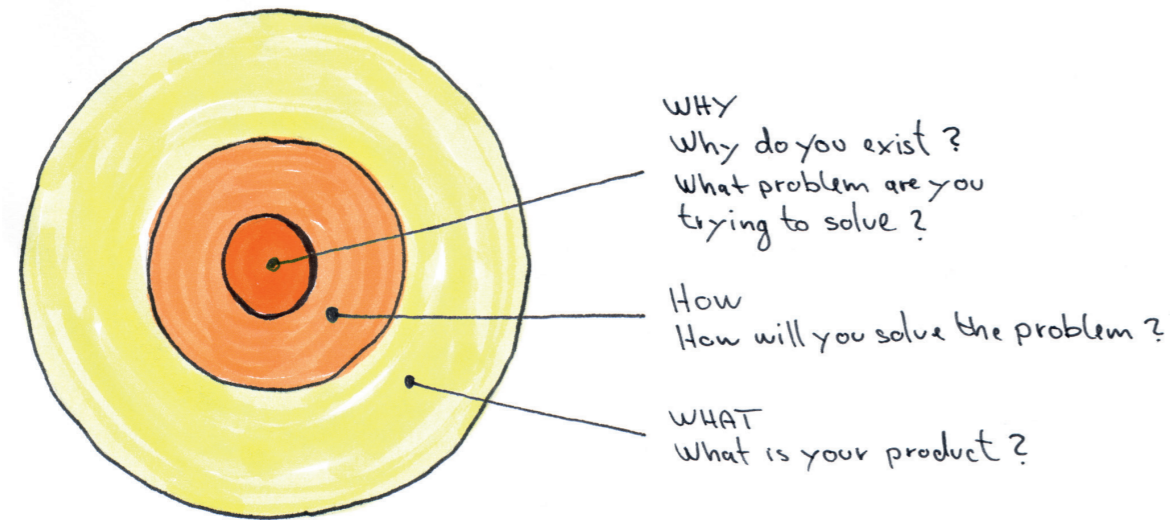 WHY
Why do you exist?
What problem are you
trying to solve?
How
How will you solve the problem?
WHAT
What is your product?